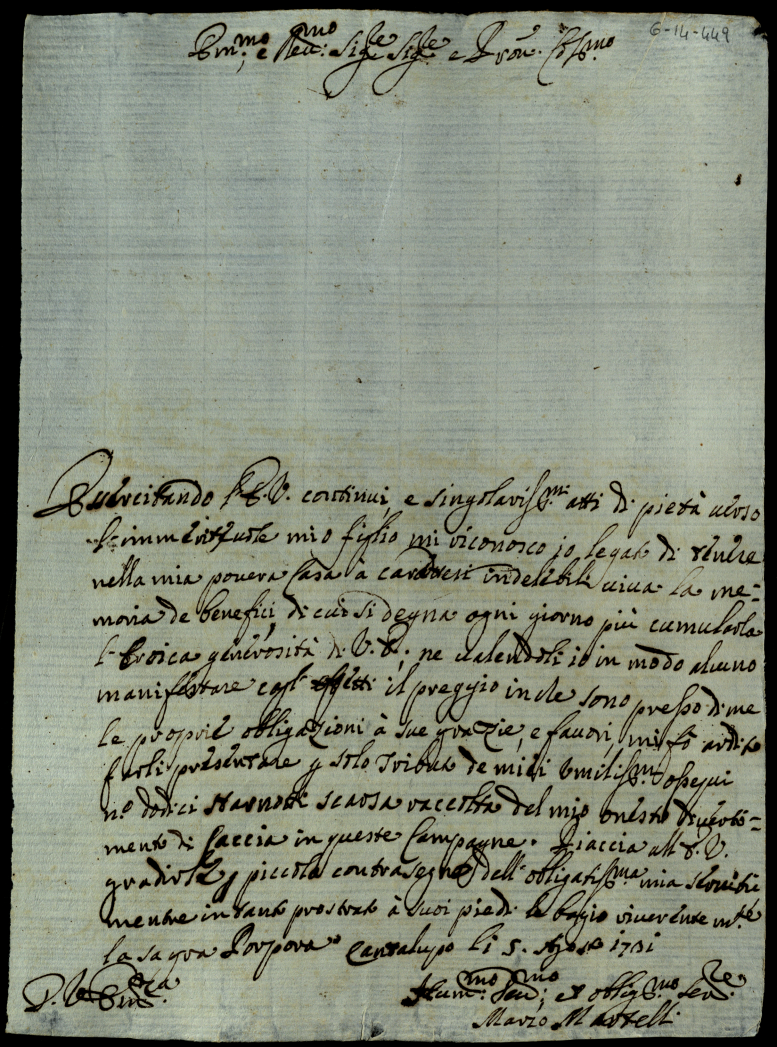 6-14-449
Em:mo e Reu:mo Sig:re Sig:re e Pron. Col:mo
Essercitando l'E.V. continui, e singolariss:mi atti di pietà verso
l'immeritevole mio figlio mi riconosco io legato di tenere
nella mia povera Casa à caratteri indelebili viva la me=
moria de benefici, di cui si degna ogni giorno più cumularla
l'Eroica generosità di V.E., ne valendoli io in modo alcuno
manifestare cogl' effetti il preggio in che sono presso di me
le proprie obligazioni à sue grazie, e favori, mi fò ardito
farli presentare p solo tributo de miei umiliss:mi ossequi
n.o dodici starnotti scarsa raccolta del mio onesto diverti=
mento di Caccia in queste Campagne. Piaccia all'E.V.
gradirli p piccolo contrasegno dell'obligatiss:ma mia servitù
mentre in tanto prostrato à suoi piedi le bagio riverente m.te
la sagra Porpora. Cantalupo li 5. Agosto 1731
D. V. Em:za
Hum:mo Deu:mo, et oblig:mo Ser:re
Marzio Martelli